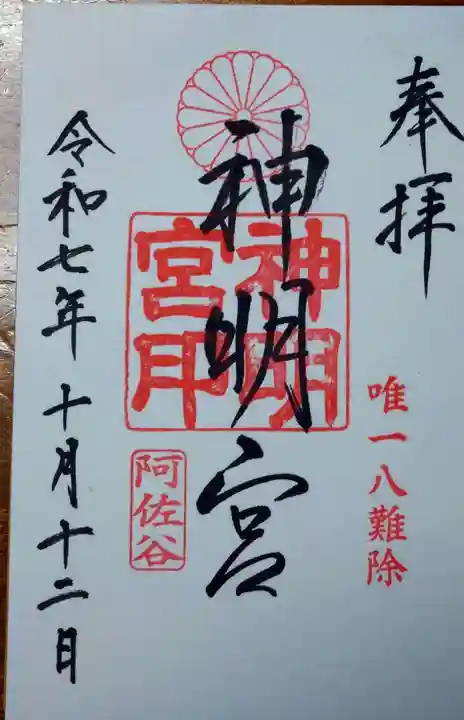 奉拝
唯一八難除
神明宮
神明宮印
阿佐谷
令和七年十月十二日